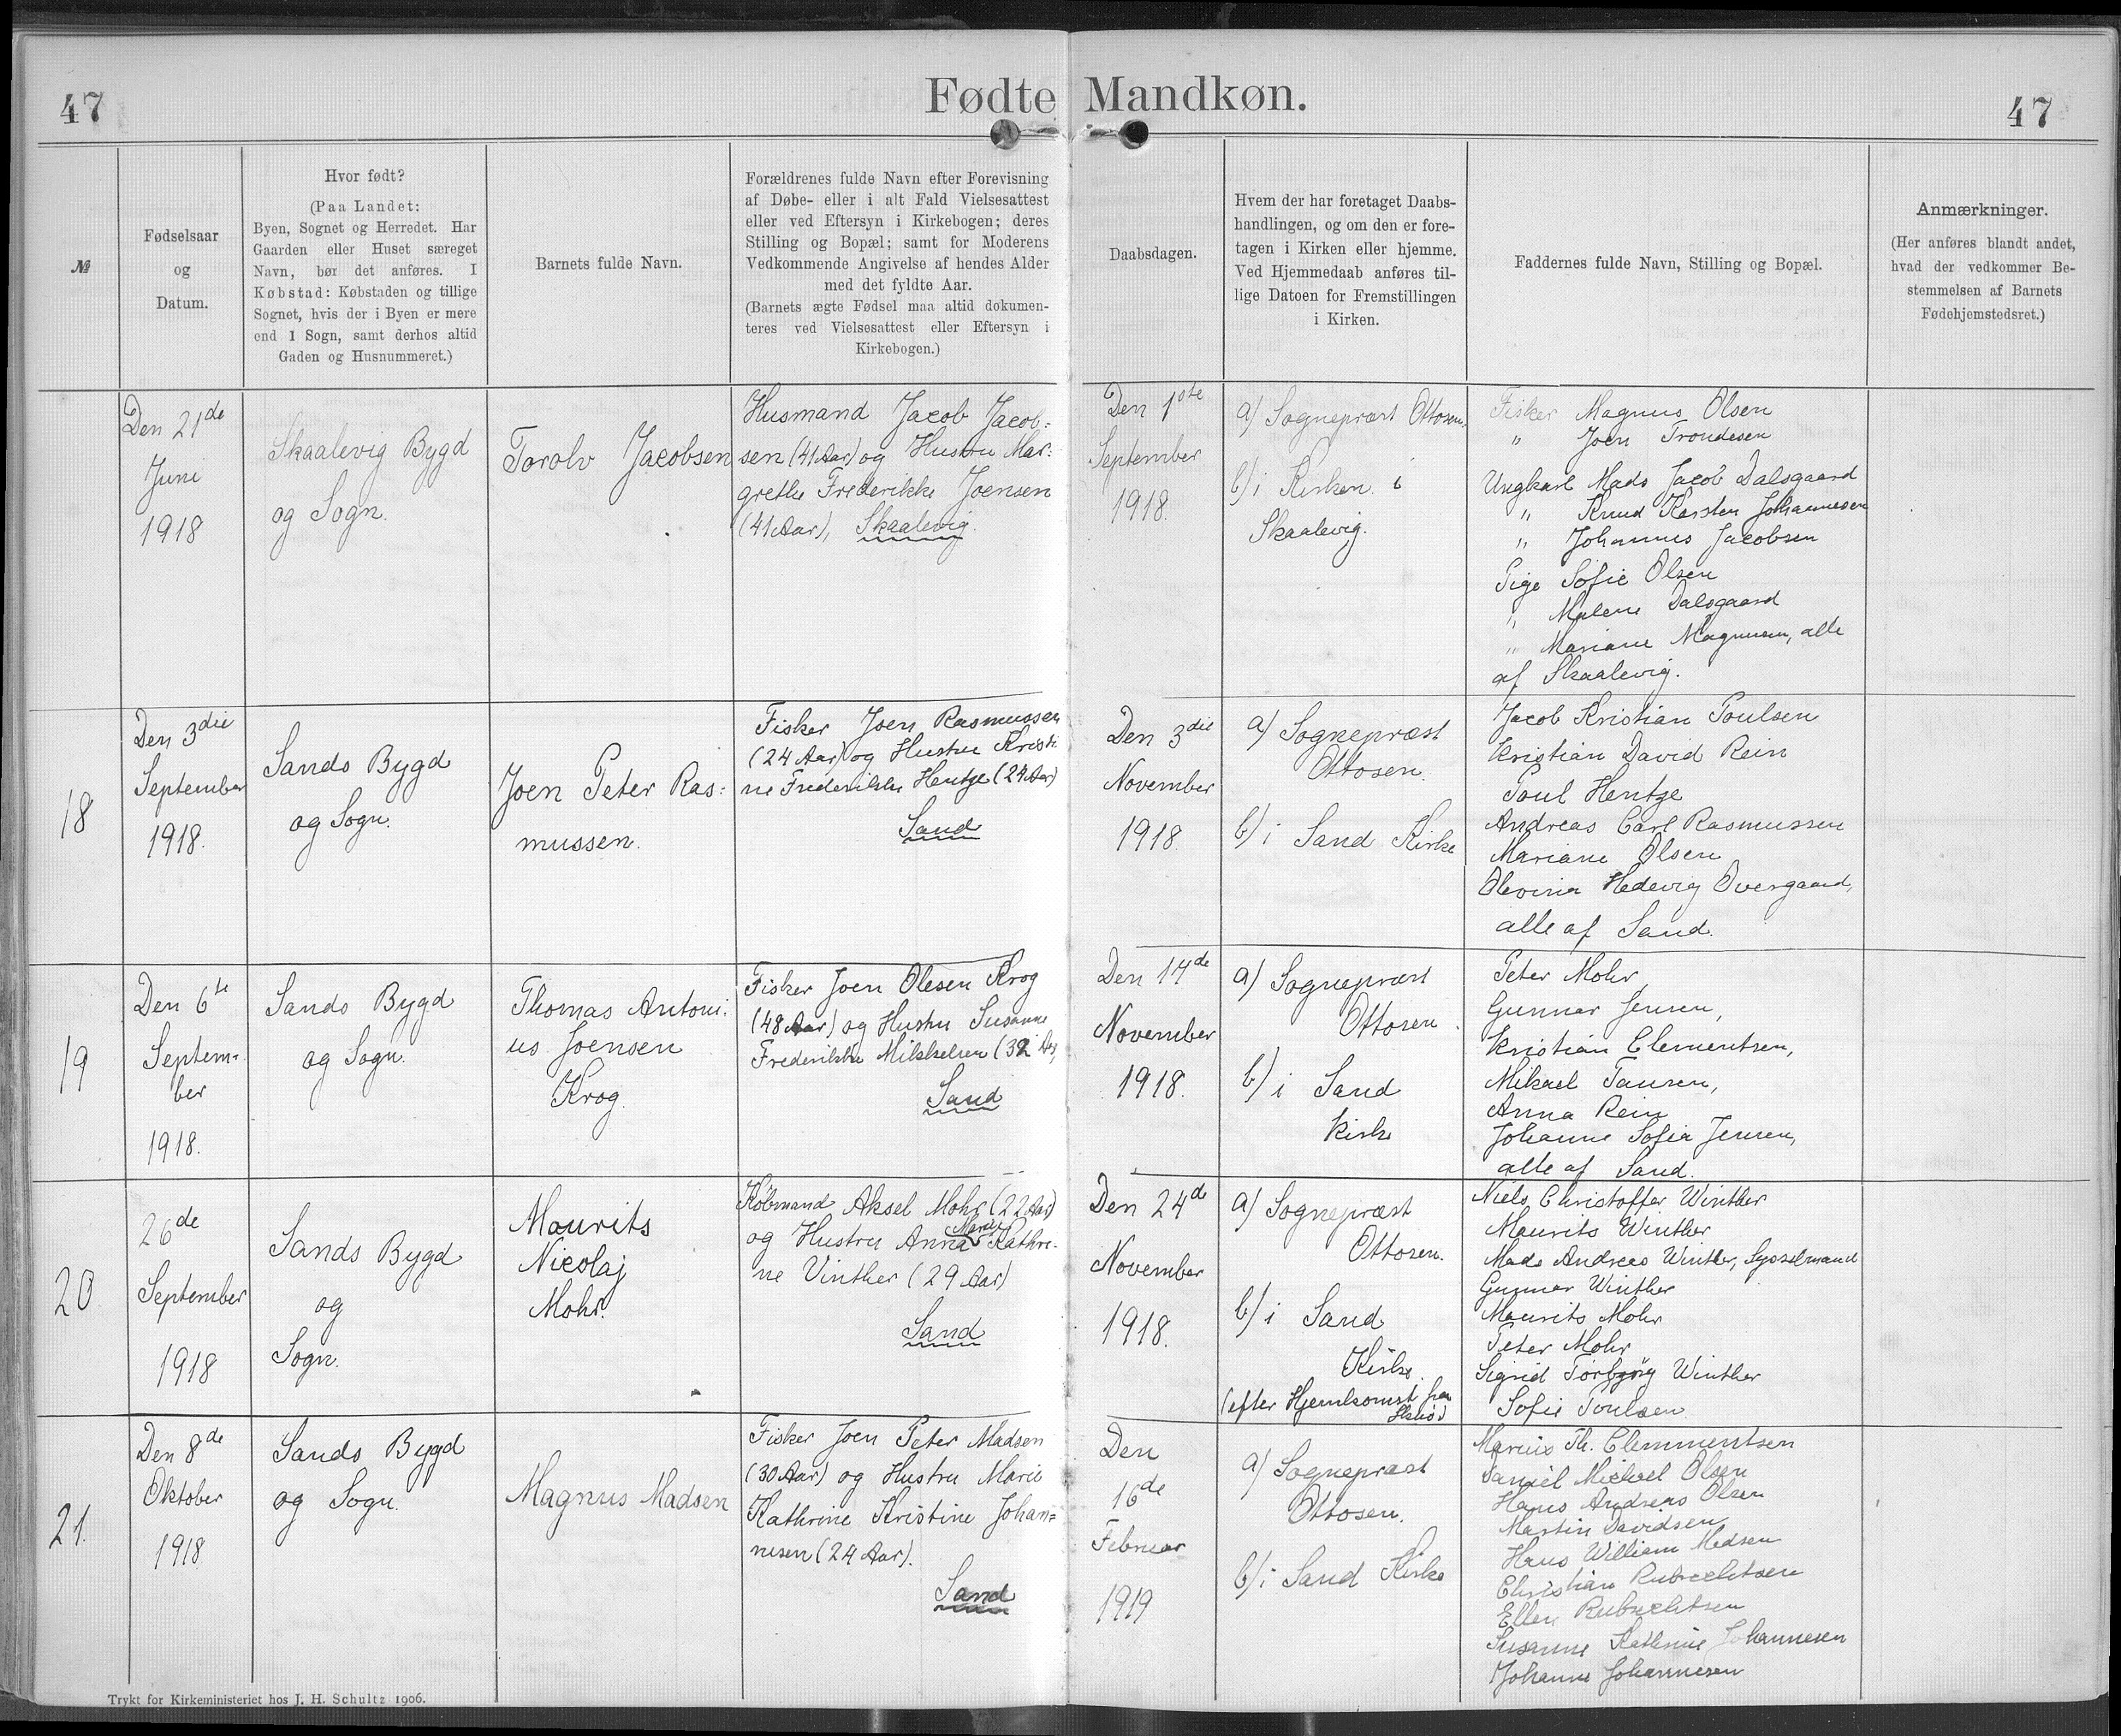 47
Fødte Mandkøn.
47
№
Fødselsaar
og
Datum.
Hvor født?
(Paa Landet:
Byen, Sognet og Herredet. Har
Gaarden eller Huset særeget
Navn, bør det anføres. I
Købstad: Købstaden og tillige
Sognet, hvis der i Byen er mere
end 1 Sogn, samt derhos altid
Gaden og Husnummeret.)
Barnets fulde Navn.
Forældrenes fulde Navn efter Forevisning
af Døbe- eller i alt Fald Vielsesattest
eller ved Eftersyn i Kirkebogen; deres
Stilling og Bopæl; samt for Moderens
Vedkommende Angivelse af hendes Alder
med det fyldte Aar.
(Barnets ægte Fødsel maa altid dokumen-
teres ved Vielsesattest eller Eftersyn i
Kirkebogen.)
Daabsdagen.
Hvem der har foretaget Daabs-
handlingen, og om den er fore-
tagen i Kirken eller hjemme.
Ved Hjemmedaab anføres til-
lige Datoen for Fremstillingen
i Kirken.
Faddernes fulde Navn, Stilling og Bopæl.
Anmærkninger.
(Her anføres blandt andet,
hvad der vedkommer Be-
stemmelsen af Barnets
Fødehjemstedsret.)
Den 21de
Juni
1918
Skaalevig Bygd
og Sogn.
Torolv Jacobsen
Husmand Jacob Jacob=
sen (41 Aar) og Hustru Mar=
grethe Frederikke Joensen
(41 Aar), Skaalevig.
Den 1ste
September
1918.
a) Sognepræst Ottosen.
b) i Kirken i
Skaalevig.
Fisker Magnus Olsen
" Joen Trondesen
Ungkarl Mads Jacob Dalsgaard
" Knud Karsten Johannesen
" Johannes Jacobsen
Pige Sofie Olsen
" Malene Dalsgaard
" Mariane Magnusen, alle
af Skaalevig.
18
Den 3die
September
1918.
Sands Bygd
og Sogn.
Joen Peter Ras=
mussen.
Fisker Joen Rasmussen
(24 Aar) og Hustru Kristi
ne Frederikke Hentze (24 Aar)
Sand
Den 3die
November
1918.
a) Sognepræst
Ottosen.
b) i Sand Kirke
Jacob Kristian Poulsen
Kristian David Rein
Poul Hentze
Andreas Carl Rasmussen
Mariane Olsen
Olevina Hedevig Overgaard,
alle af Sand.
19
Den 6te
Septem=
ber
1918.
Sands Bygd
og Sogn.
Thomas Antoni=
us Joensen
Krog.
Fisker Joen Olesen Krog
(48 Aar) og Hustru Susanne
Frederikke Mikkelsen (32 Aar)
Sand
Den 14de
November
1918.
a) Sognepræst
Ottosen.
b) i Sand
Kirke
Peter Mohr,
Gunnar Jensen,
Kristian Clementsen,
Mikael Tausen,
Anna Rein
Johanne Sofia Jensen,
alle af Sand.
20
26de
September
1918
Sands Bygd
og
Sogn.
Maurits
Nicolaj
Mohr.
Købmand Aksel Mohr (22 Aar)
og Hustru Anna Marie Kathri-
ne Vinther (29 Aar)
Sand
Den 24de
November
1918.
a) Sognepræst
Ottosen.
b) i Sand
Kirke.
(efter Hjemkomst fra
Niels Christoffer Winther
Maurits Winther
Mads Andreas Winther, Sysselmand
Gunnar Winther
Maurits Mohr
Peter Mohr
Sigrid Torbjørg Winther
Sofie Poulsen
21.
Den 8de
Oktober
1918
Sands Bygd
og Sogn.
Magnus Madsen
Fisker Joen Peter Madsen
(30 Aar) og Hustru Marie
Kathrine Kristine Johan=
nesen (24 Aar).
Sand
Den
16de
Februar
1919
a) Sognepræst
Ottosen.
b) i Sand Kirke
Marius Th. Clemmentsen
Daniel Michael Olsen
Hans Andreas Olsen
Martin Davidsen
Hans William Madsen
Christian Rubrechtsen
Ellen Rubrechtsen
Susanne Kathrine Johannesen
Johanne Johannesen
Trykt for Kirkeministeriet hos J. H. Schultz 1906.